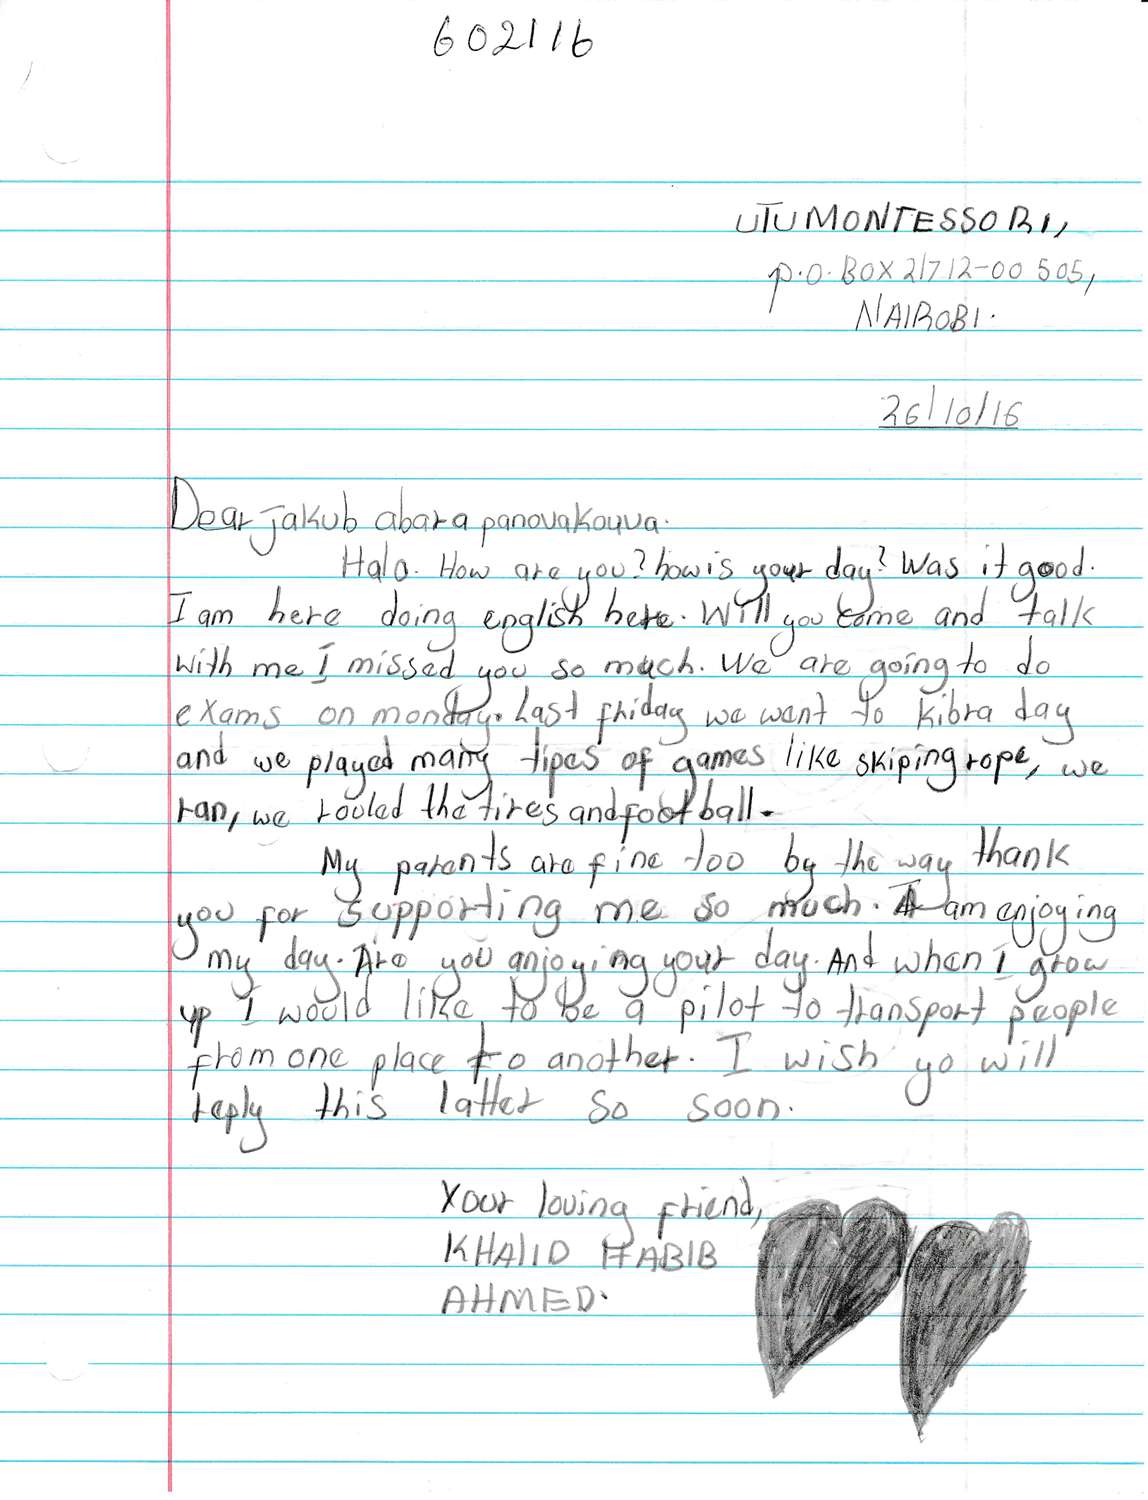 602116
UTU MONTESSORI,
p.o. BOX 21712-00 505,
NAIROBI.
26/10/16
Dear jakub abara panovakouva.
Halo. How are you? how is your day? Was it good.
I am here doing english here. Will you come and talk
with me I missed you so much. We are going to do
exams on monday. Last friday we went to kibra day
and we played many tipes of games like skiping rope, we
ran, we rouled the tires and foot ball.
My parents are fine too by the way thank
you for supporting me so much. I am enjoying
my day. Are you anjoying your day. And when I grow
up I would like to be a pilot to transport people
from one place to another. I wish yo will
reply this latter so soon.
Your loving friend,
KHALID HABIB
AHMED.